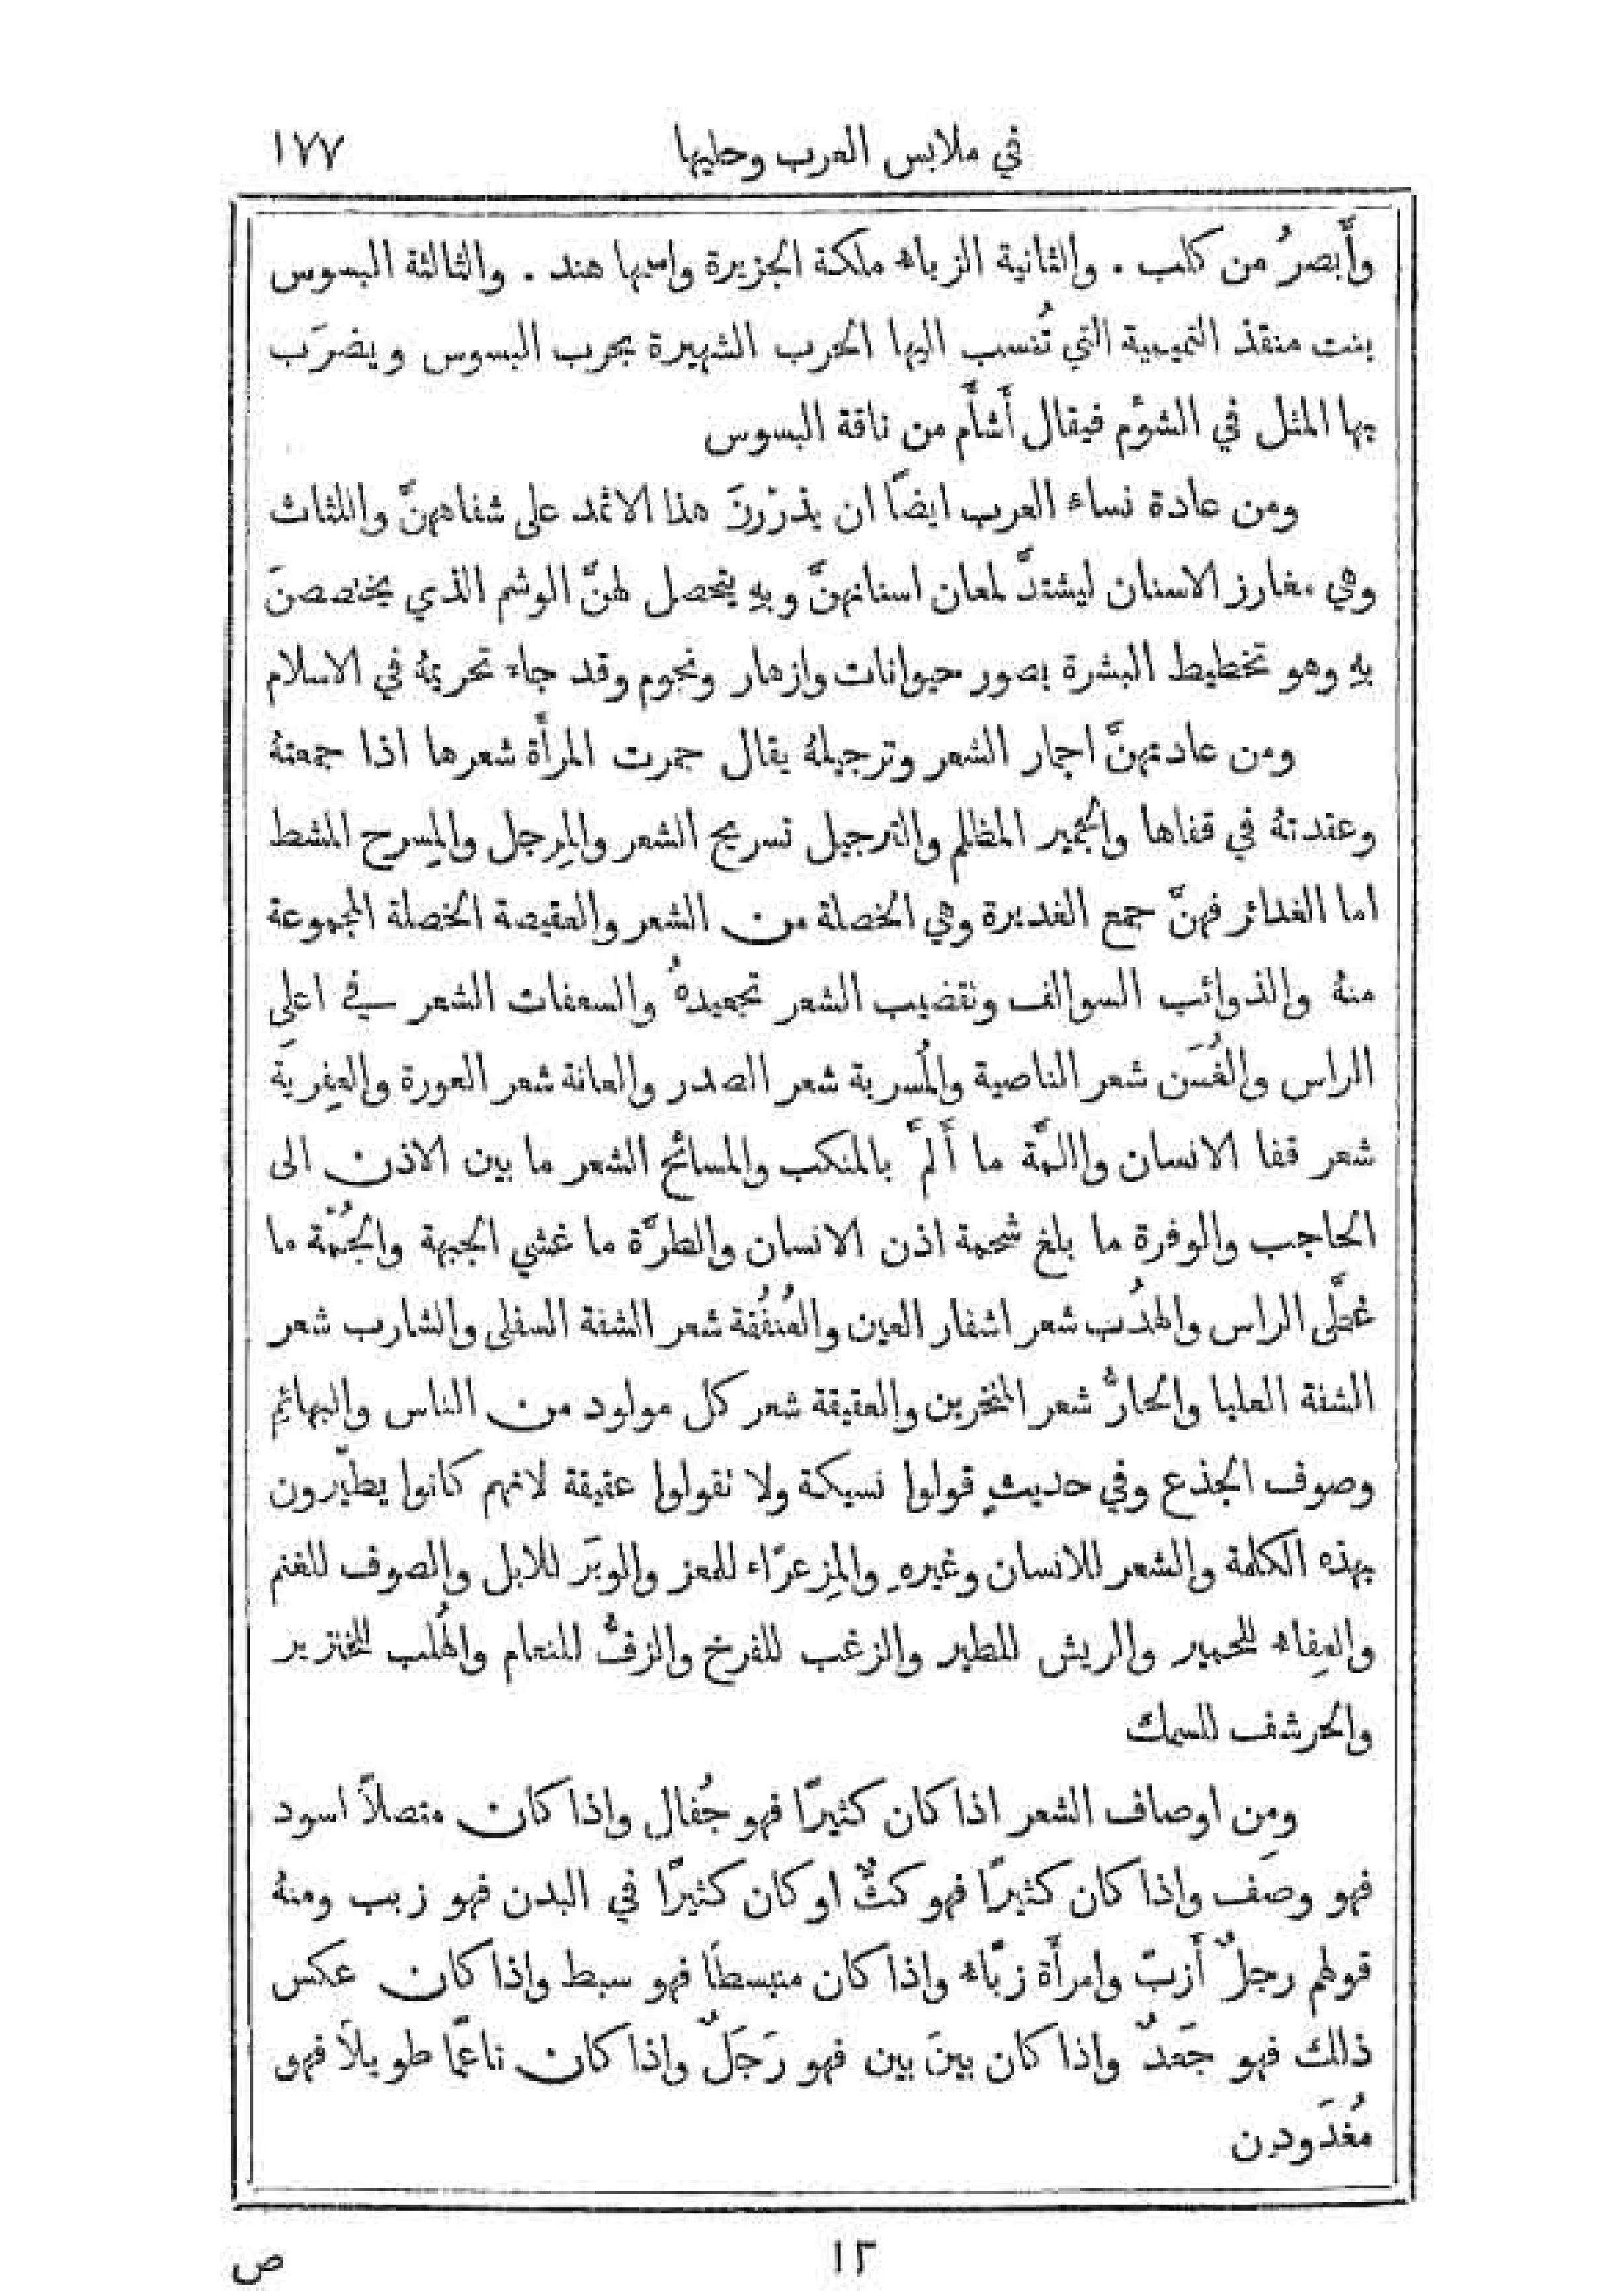 في ملابس العرب وحليها ١٧٧
وأَبصرُ من كلب . والثانية الزباء ملكة الجزيرة واسمها هند . والثالثة البسوس
بنت منقذ التميمية التي تُنسب اليها الحرب الشهيرة بحرب البسوس ويضرَب
بها المثل في الشؤم فيقال أَشأَم من ناقة البسوس
ومن عادة نساء العرب ايضًا ان يذررنَ هذا الاثمد على شفاههنَّ واللثاث
وهي مغارز الاسنان ليشتدَّ لمعان اسنانهنَّ وبهِ يتحصل لهنَّ الوشم الذي يختصصنَ
بهِ وهو تخطيط البشرة بصور حيوانات وازهار ونجوم وقد جاء تحريمهُ في الاسلام
ومن عادتهنَّ اجمار الشعر وترجيلهُ يقال جمرت المرأَة شعرها اذا جمعتهُ
وعقدتهُ في قفاها والجمير المظلم والترجيل تسريح الشعر والمِرجل والمِسرح المشط
اما الغدائر فهنَّ جمع الغديرة وهي الخصلة من الشعر والعقيصة الخصلة المجموعة
منهُ والذوائب السوالف وتقضيب الشعر تجعيدهُ والسعفات الشعر في اعلى
الراس والغُسَن شعر الناصية والمُسربة شعر الصدر والعانة شعر العورة والعِفرِيَة
شعر قفا الانسان واللمَّة ما أَلمَّ بالمنكب والمسائح الشعر ما بين الاذن الى
الحاجب والوفرة ما بلغ شحمة اذن الانسان والطرَّة ما غشي الجبهة والجُمَّة ما
غطَّى الراس والهدُب شعر اشفار العين والعُنفُقة شعر الشفة السفلى والشارب شعر
الشفة العليا والخارُّ شعر المنخرين والعقيقة شعر كل مولود من الناس والبهائمِ
وصوف الجذع وفي حديثٍ قولوا نسيكة ولا تقولوا عقيقة لانهم كانوا يطيّرون
بهذه الكلمة والشعر للانسان وغيرهِ والمِزعرّاء للمعز والوبَر للابل والصوف للغنم
والعِفاء للحمير والريش للطير والزغب للفرخ والزفُّ للنعام والهُلب للخنزير
والحرشف للسمك
ومِن اوصاف الشعر اذا كان كثيرًا فهو جُفال واذا كان متصلاً اسود
فهو وصف واذا كان كثيرًا فهو كثٌّ او كان كثيرًا في البدن فهو زبب ومنهُ
قولهم رجلٌ أَزبّ وامرأَة زبّاء واذا كان منبسطًا فهو سبط واذا كان عكس
ذلك فهو جَعدٌ واذا كان بينَ بين فهو رَجَلٌ واذا كان ناعمًا طويلاً فهو
مُغدَودِن
١٢ ص